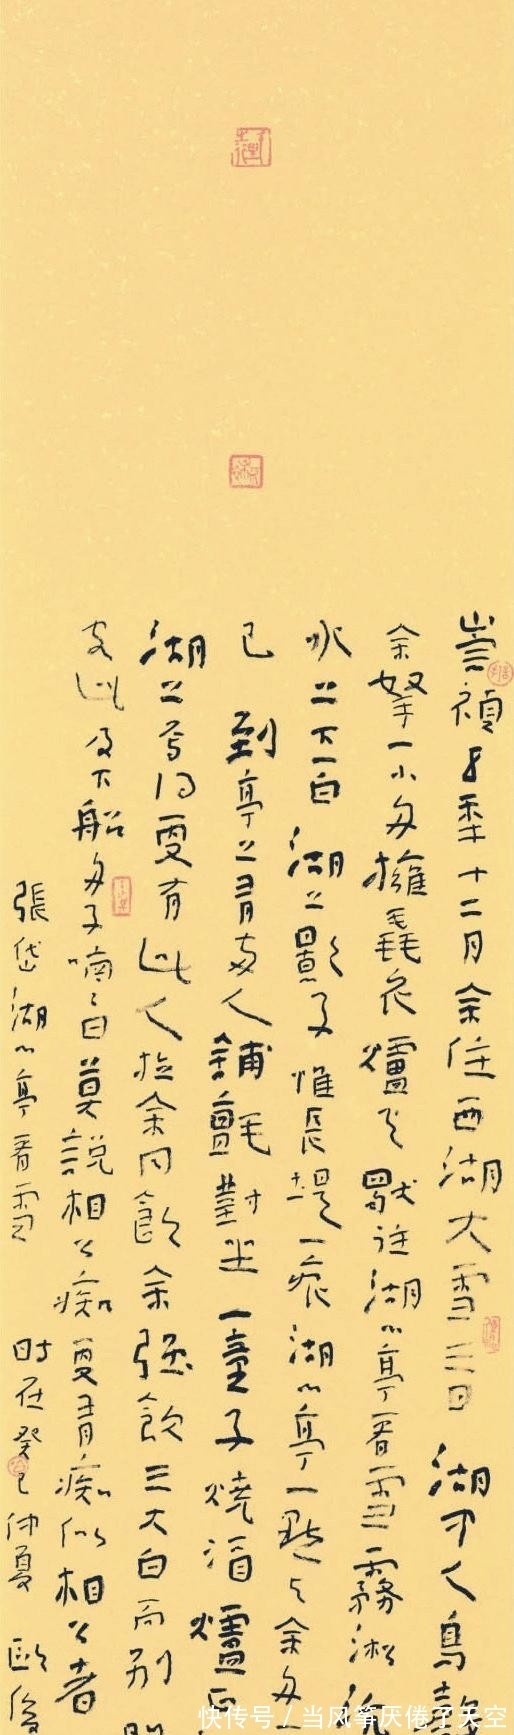 崇禎五秊十二月余住西湖大雪三日湖中人鳥
余拏一小舟擁毳衣爐火獨往湖心亭看雪霧淞沆
水上下一白湖上影子惟長堤一痕湖心亭一點与余舟
已到亭上有兩人鋪氈對坐一童子燒酒爐正
湖上焉得更有此人拉余同飲余強飲三大白而別
客此及下船舟子喃喃曰莫說相公痴更有痴似相公者
張岱湖心亭看雪 时在癸巳仲夏 歐
快传号 / 当风筝厌倦了天空